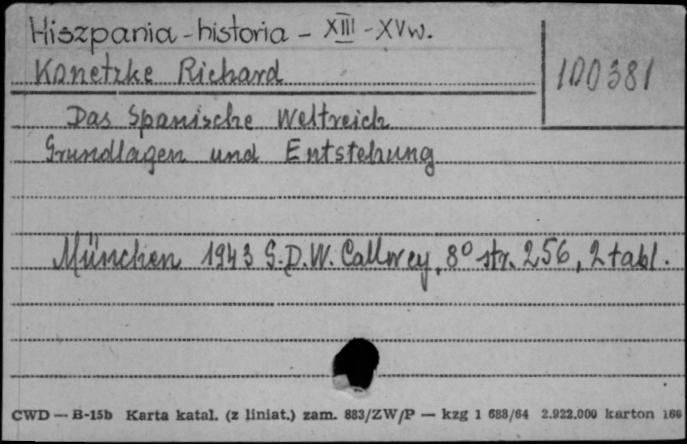 Hiszpania - historia - XIII - XVw.
Konetzke Richard
100381
Das Spanische Weltreich
Grundlagen und Entstehung
München 1943 G.D.W. Callwey, 8° str. 256, 2 tabl.
CWD — B-15b Karta katal. (z liniat.) zam. 883/ZW/P — kzg 1 688/64 2.922.000 karton 160